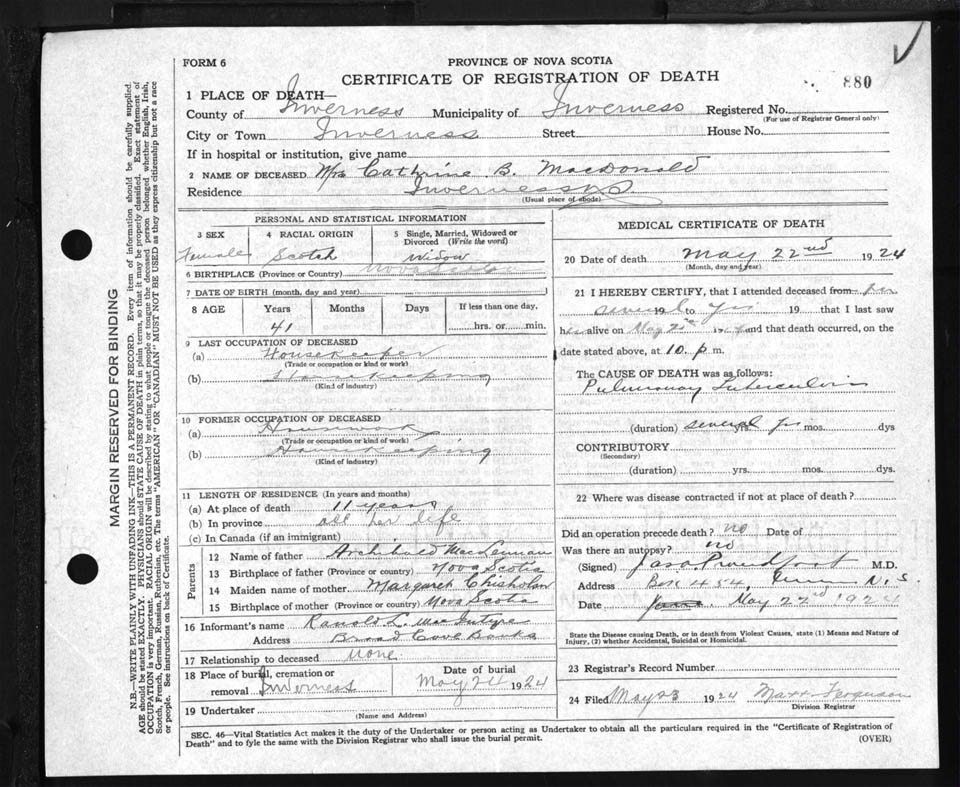 FORM 6
PROVINCE OF NOVA SCOTIA
CERTIFICATE OF REGISTRATION OF DEATH
880
1 PLACE OF DEATH—
County of Inverness Municipality of Inverness Registered No.
(For use of Registrar General only)
City or Town Inverness Street House No.
If in hospital or institution, give name
2 NAME OF DECEASED Mrs Cathrine B. MacDonald
Residence Inverness
(Usual place of abode)
PERSONAL AND STATISTICAL INFORMATION
3 SEX 4 RACIAL ORIGIN 5 Single, Married, Widowed or Divorced (Write the word)
Female Scotch Widow
6 BIRTHPLACE (Province or Country) Nova Scotia
7 DATE OF BIRTH (month, day and year)
8 AGE Years Months Days If less than one day,
41 hrs. or min.
9 LAST OCCUPATION OF DECEASED
(a) Housekeeper
(Trade or occupation or kind or work)
(b)
(Kind of industry)
10 FORMER OCCUPATION OF DECEASED
(a) Housework
(Trade or occupation or kind of work)
(b) Housekeeping
(Kind of industry)
11 LENGTH OF RESIDENCE (In years and months)
(a) At place of death 11 years
(b) In province all her life
(c) In Canada (if an immigrant)
Parents
12 Name of father Archibald MacLennan
13 Birthplace of father (Province or country) Nova Scotia
14 Maiden name of mother Margaret Chisholm
15 Birthplace of mother (Province or country) Nova Scotia
16 Informant's name Ranold L. MacIntyre
Address Broad Cove Banks
17 Relationship to deceased None
18 Place of burial, cremation or removal Inverness Date of burial May 24 1924
19 Undertaker
(Name and Address)
MEDICAL CERTIFICATE OF DEATH
20 Date of death May 22nd 1924
(Month, day and year)
21 I HEREBY CERTIFY, that I attended deceased from for
several 19 to yrs 19 that I last saw
her alive on May 19 and that death occurred, on the
date stated above, at 10. p m.
The CAUSE OF DEATH was as follows:
Pulmonary Tuberculosis
(duration) several yrs. mos. dys
CONTRIBUTORY
(Secondary)
(duration) yrs. mos. dys.
22 Where was disease contracted if not at place of death?
Did an operation precede death? no Date of
Was there an autopsy? no
(Signed) Jas Proudfoot M.D.
Address Box 454, N.S.
Date May 22nd 1924
State the Disease causing Death, or in death from Violent Causes, state (1) Means and Nature of
Injury, (2) whether Accidental, Suicidal or Homicidal.
23 Registrar's Record Number
24 Filed May 23 1924 Ferguson
Division Registrar
SEC. 46—Vital Statistics Act makes it the duty of the Undertaker or person acting as Undertaker to obtain all the particulars required in the "Certificate of Registration of
Death" and to fyle the same with the Division Registrar who shall issue the burial permit.
(OVER)
MARGIN RESERVED FOR BINDING
N.B.—WRITE PLAINLY WITH UNFADING INK—THIS IS A PERMANENT RECORD. Every item of information should be carefully supplied.
AGE should be stated EXACTLY. PHYSICIANS should STATE CAUSE OF DEATH in plain terms, so that it may be properly classified. Exact statement of
OCCUPATION is very important. RACIAL ORIGIN will be described by stating to what people or tongue the deceased person belonged, whether English, Irish,
Scotch, French, German, Russian, Ruthenian, etc. The terms "AMERICAN" OR "CANADIAN" MUST NOT BE USED as they express citizenship but not a race
or people. See instructions on back of Certificate.